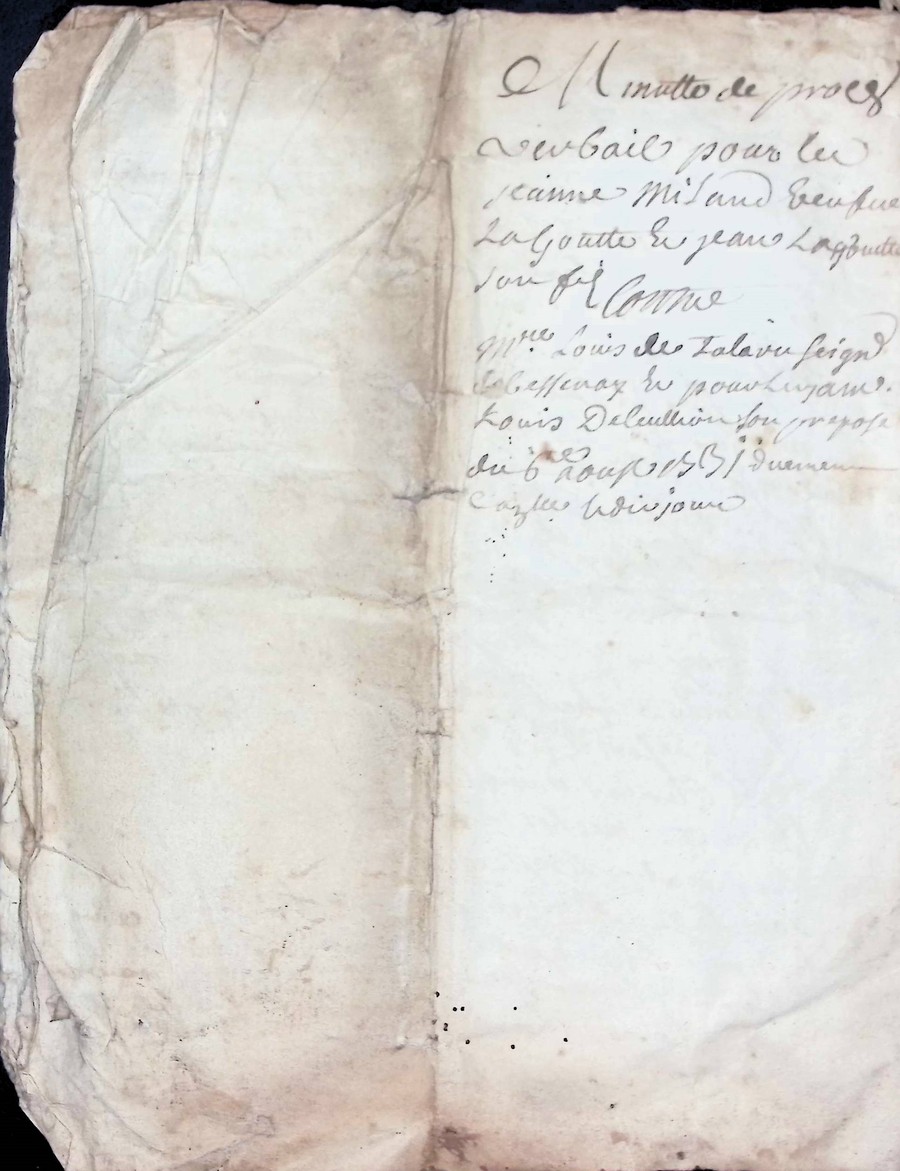 Minutte de proces
verbail pour les
jeanne Miland veufve
Lagoutte Et jean Lagoutte
son fil Contre
Mre Louis de Talaru seignr
de Et pour luy
Louis Decullion son prepose
du 6e aoust 1731 duement